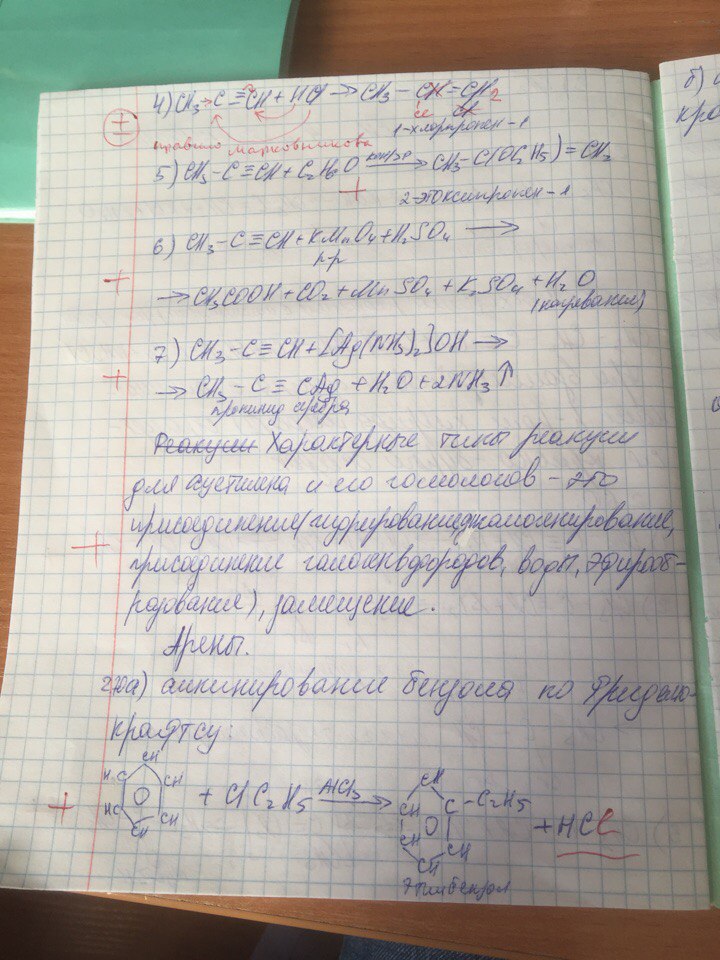 б)
кра
4) CH3 → C ≡ CH + HCl → CH3 – CH = CH2
±
Cl
1-хлорпропен-1
правило Марковникова
5) CH3 – C ≡ CH + C2H6O → CH3 – C(OC2H5) = CH2
+
2-этоксипропен-1
6) CH3 – C ≡ CH + KMnO4 + H2SO4 →
р-р
+ → CH3COOH + CO2 + MnSO4 + K2SO4 + H2O
(нагревание)
7) CH3 – C ≡ CH + [Ag(NH3)2]OH →
+ → CH3 – C ≡ CAg + H2O + 2NH3↑
пропинид серебра
Реакции Характерные типы реакции
для ацетилена и его гомологов – это
+ присоединение(гидрирование, галогенирование,
присоединение галогенводородов, воды, эфирооб-
разование), замещение.
Арены.
а) алкинирование бензола по Фриделю-
крафтсу:
CH
HC CH
+ HC CH + Cl C2H5 AlCl3 →
CH
CH
CH C – C2H5
CH CH + HCl
CH
этилбензол